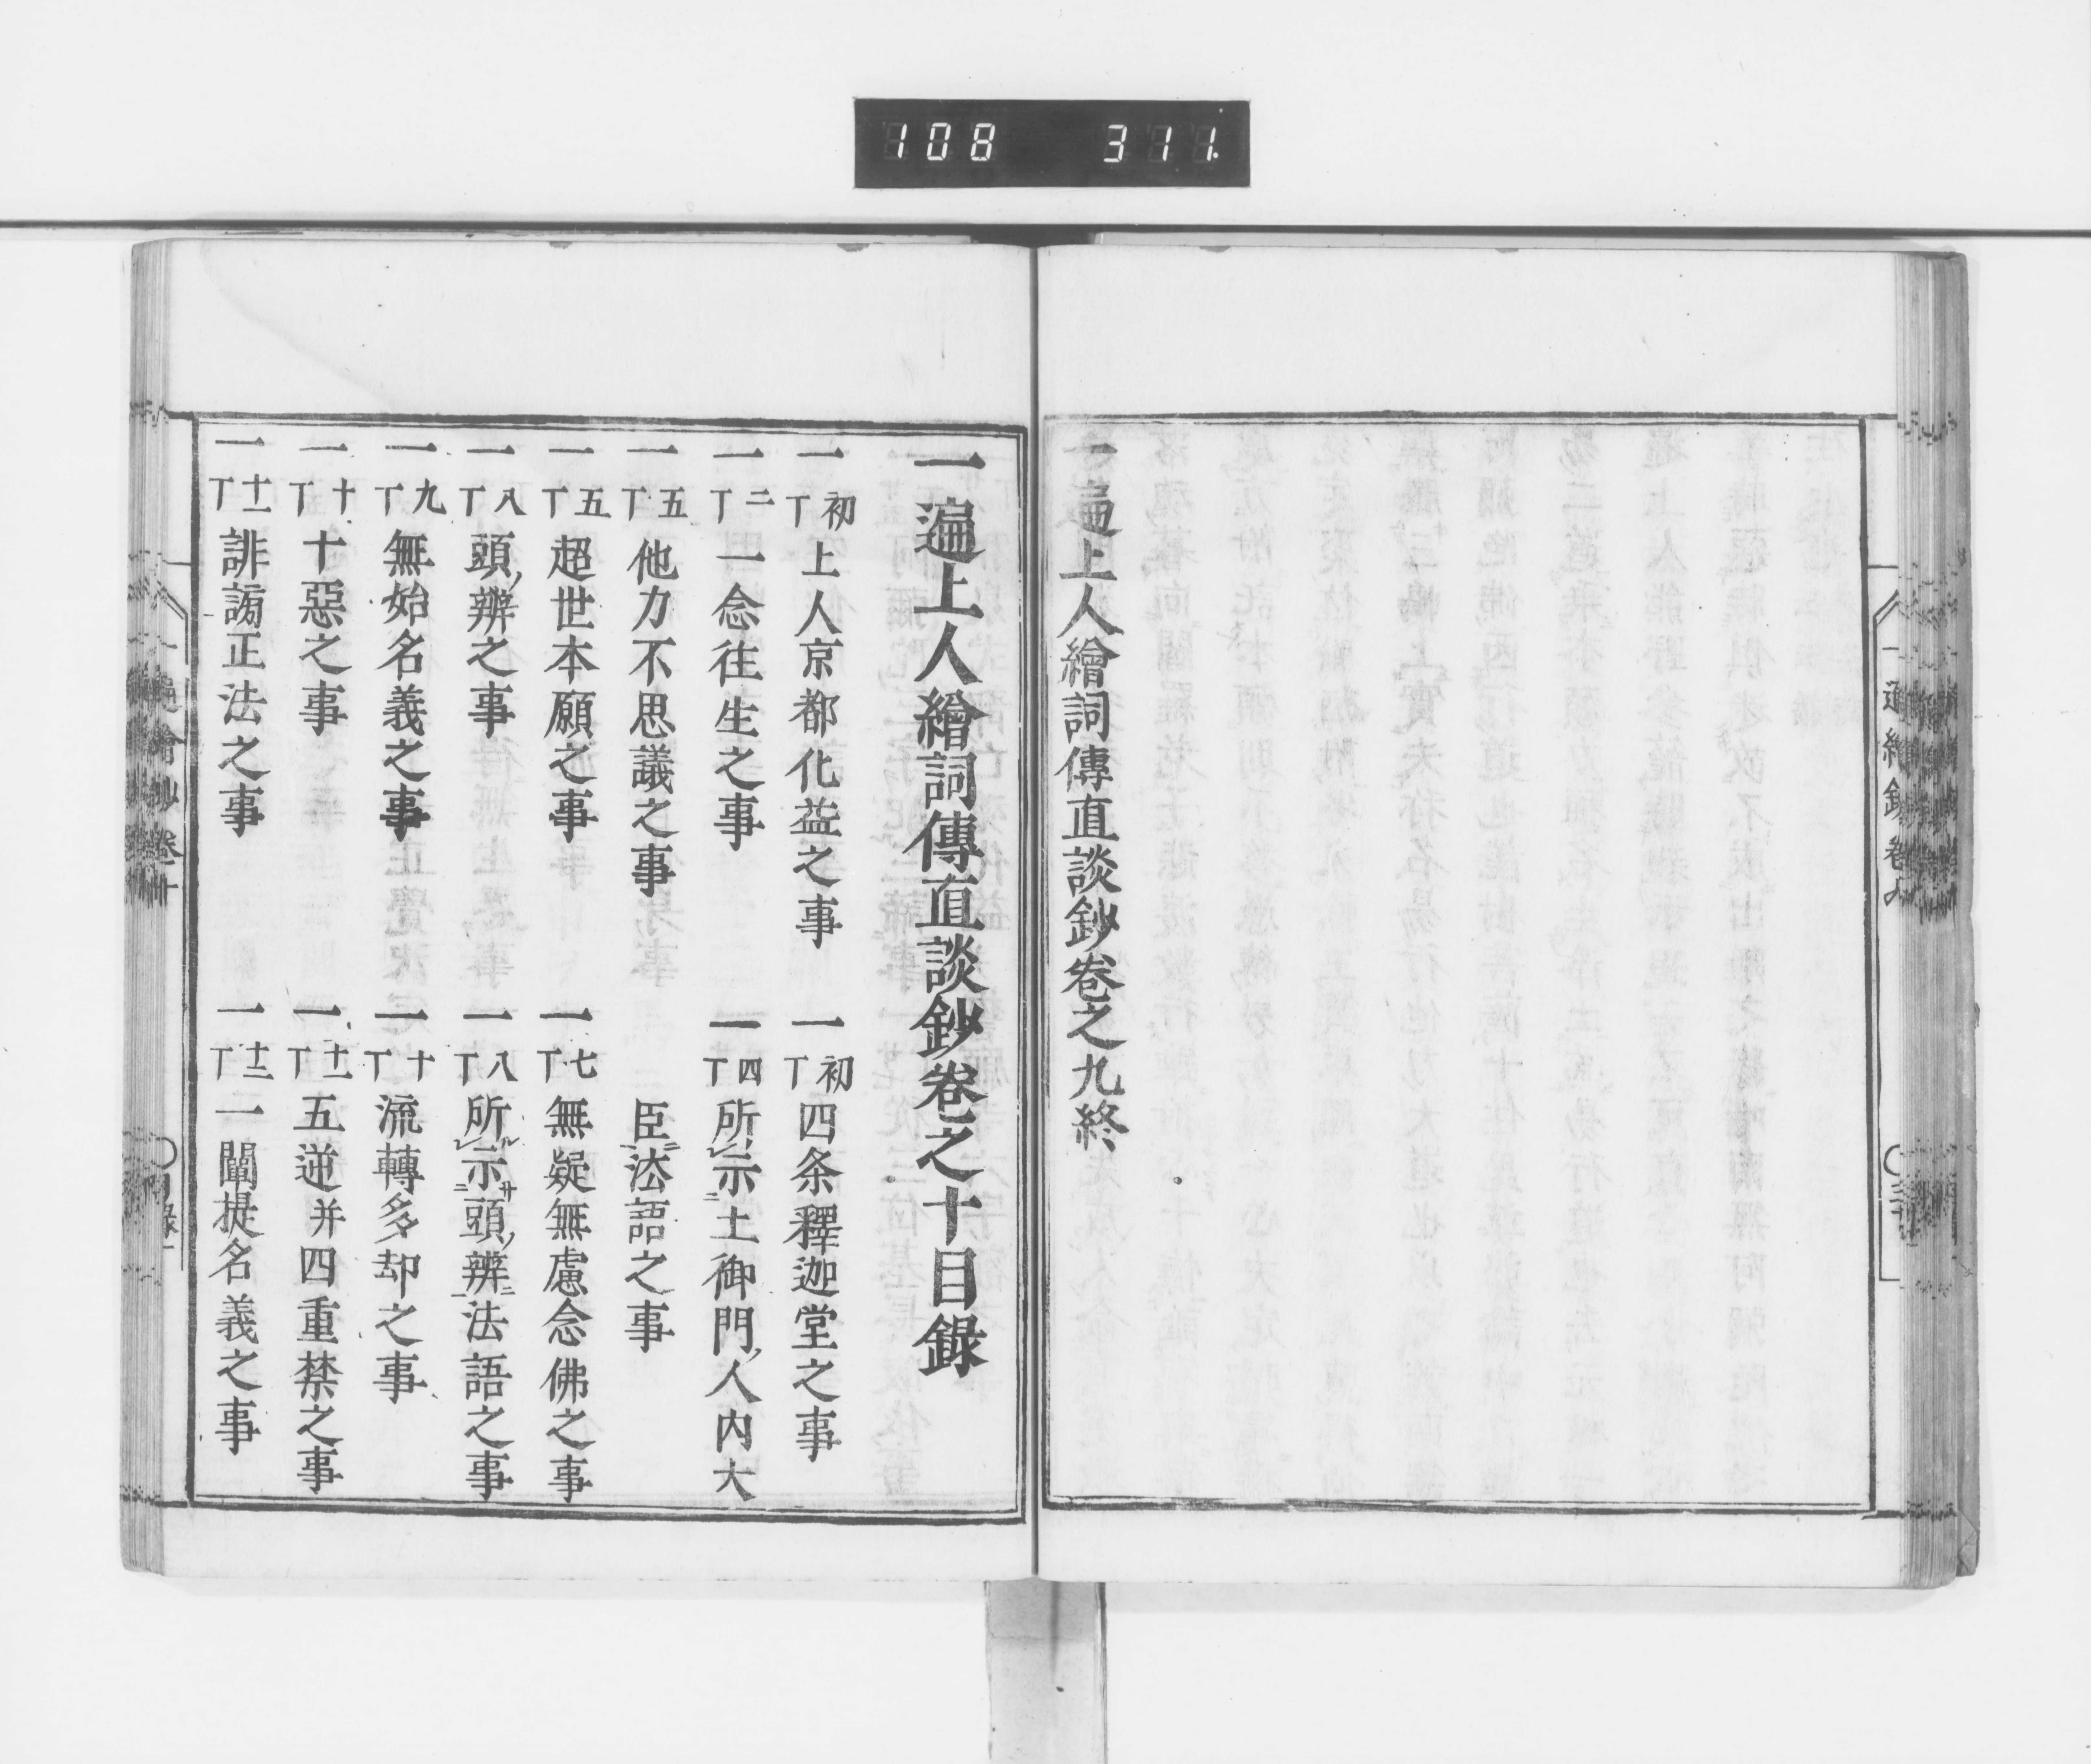 108 311.
一遍上人繪詞傳直談鈔卷之九終
一遍上人繪詞傳直談鈔卷之十目錄
一 初丁 上人京都化益之事
一 初丁 四条釋迦堂之事
一 二丁 一念往生之事
一 四丁 所示土御門人内大
臣法語之事
一 五丁 他力不思議之事
一 五丁 超世本願之事
一 七丁 無疑無慮念佛之事
一 八丁 頭辨之事
一 八丁 所示頭辨法語之事
一 九丁 無始名義之事
一 十丁 流轉多却之事
一 十丁 十惡之事
一 十一丁 五逆并四重禁之事
一 十一丁 誹謗正法之事
一 十二丁 一闡提名義之事